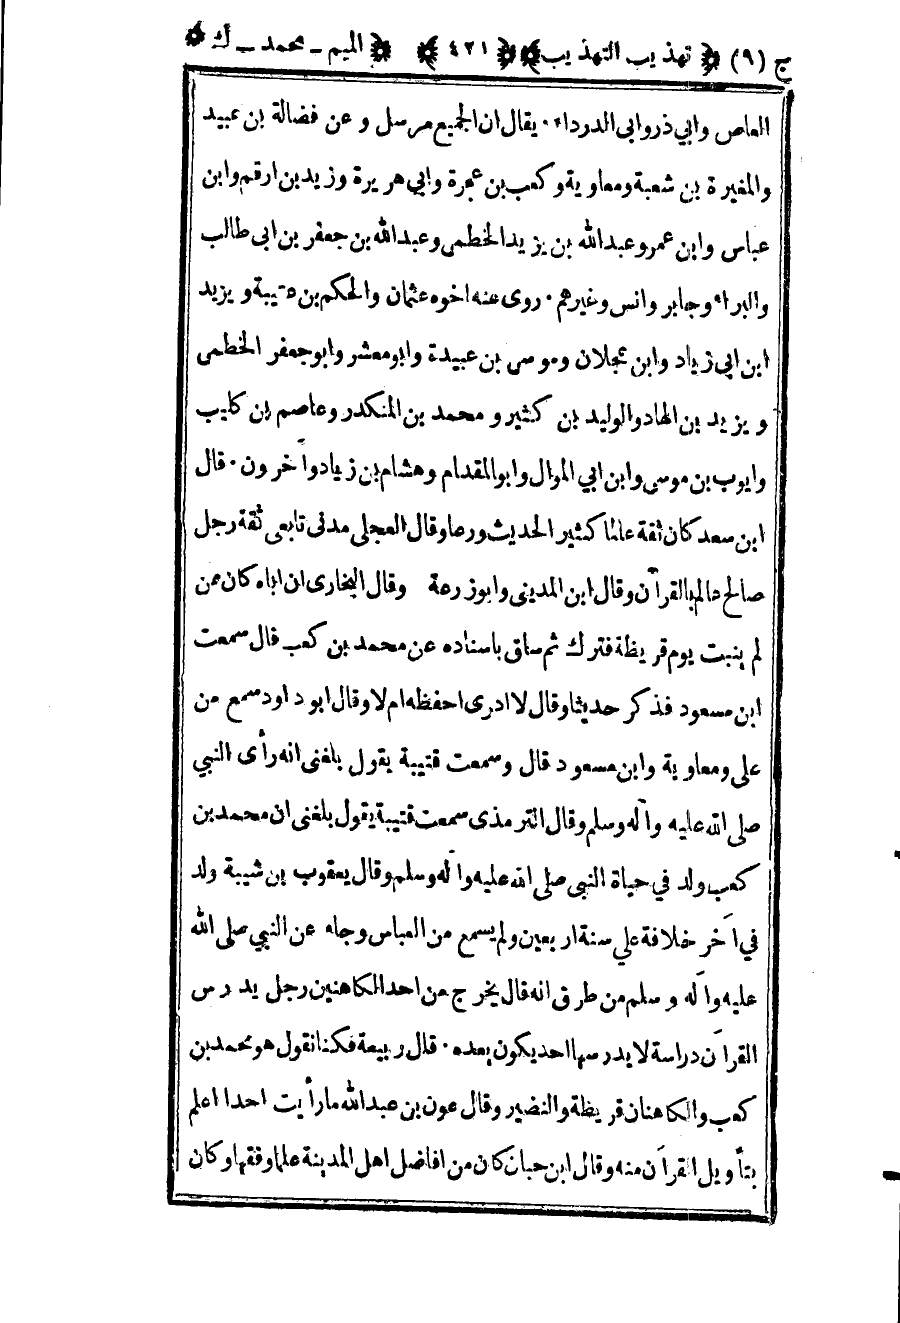 ج (٩) ﴿ تهذيب التهذيب ﴾ ﴿ ٤٢١ ﴾ ﴿ الميم ـ محمد ـ ك ﴾
العاص وابي ذر وابي الدرداء . يقال ان الجميع مرسل و عن فضالة بن عبيد
والمغيرة بن شعبة ومعاوية وكعب بن عجرة وابي هريرة وزيد بن ارقم وابن
عباس وابن عمر وعبد الله بن يزيد الخطمي وعبد الله بن جعفر بن ابى طالب
والبراء وجابر وانس وغيرهم . روى عنه اخوه عثمان والحكم بن عتيبة ويزيد
ابن ابي زياد وابن عجلان وموسى بن عبيدة وابو معشر وابو جعفر الخطمى
ويزيد بن الهاد والوليد بن كثير و محمد بن المنكدر وعاصم بن كليب
وايوب بن موسى وابن ابي الموال وابو المقدام وهشام بن زياد وآخرون . قال
ابن سعد كان ثقة عالما كثير الحديث ورعا وقال العجلى مدنى تابعى ثقة رجل
صالح عالم بالقرآن وقال ابن المدينى وابو زرعة وقال البخارى ان اباه كان ممن
لم ينبت يوم قريظة فترك ثم ساق باسناده عن محمد بن كعب قال سمعت
ابن مسعود فذكر حديثا وقال لا ادرى احفظه ام لا وقال ابو داود سمع من
على ومعاوية وابن مسعود قال وسمعت قتيبة يقول بلغنى انه رأى النبي
صلى الله عليه وآله وسلم وقال الترمذى سمعت قتيبة يقول بلغنى ان محمد بن
كعب ولد في حياة النبى صلى الله عليه وآله وسلم وقال يعقوب بن شيبة ولد
في آخر خلافة علي سنة اربعين ولم يسمع من العباس وجاء عن النبي صلى الله
عليه وآله وسلم من طرق انه قال يخرج من احد الكاهنين رجل يدرس
القرآن دراسة لا يدرسها احد يكون بعده . قال ربيعة فكنا نقول هو محمد بن
كعب والكاهنان قريظة والنضير وقال عون بن عبد الله ما رأيت احدا اعلم
بتأويل القرآن منه وقال ابن حبان كان من افاضل اهل المدينة علما وفقها وكان